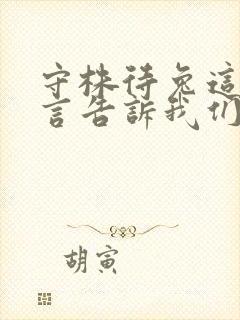 守株待兔這
言告訴我们
胡寅